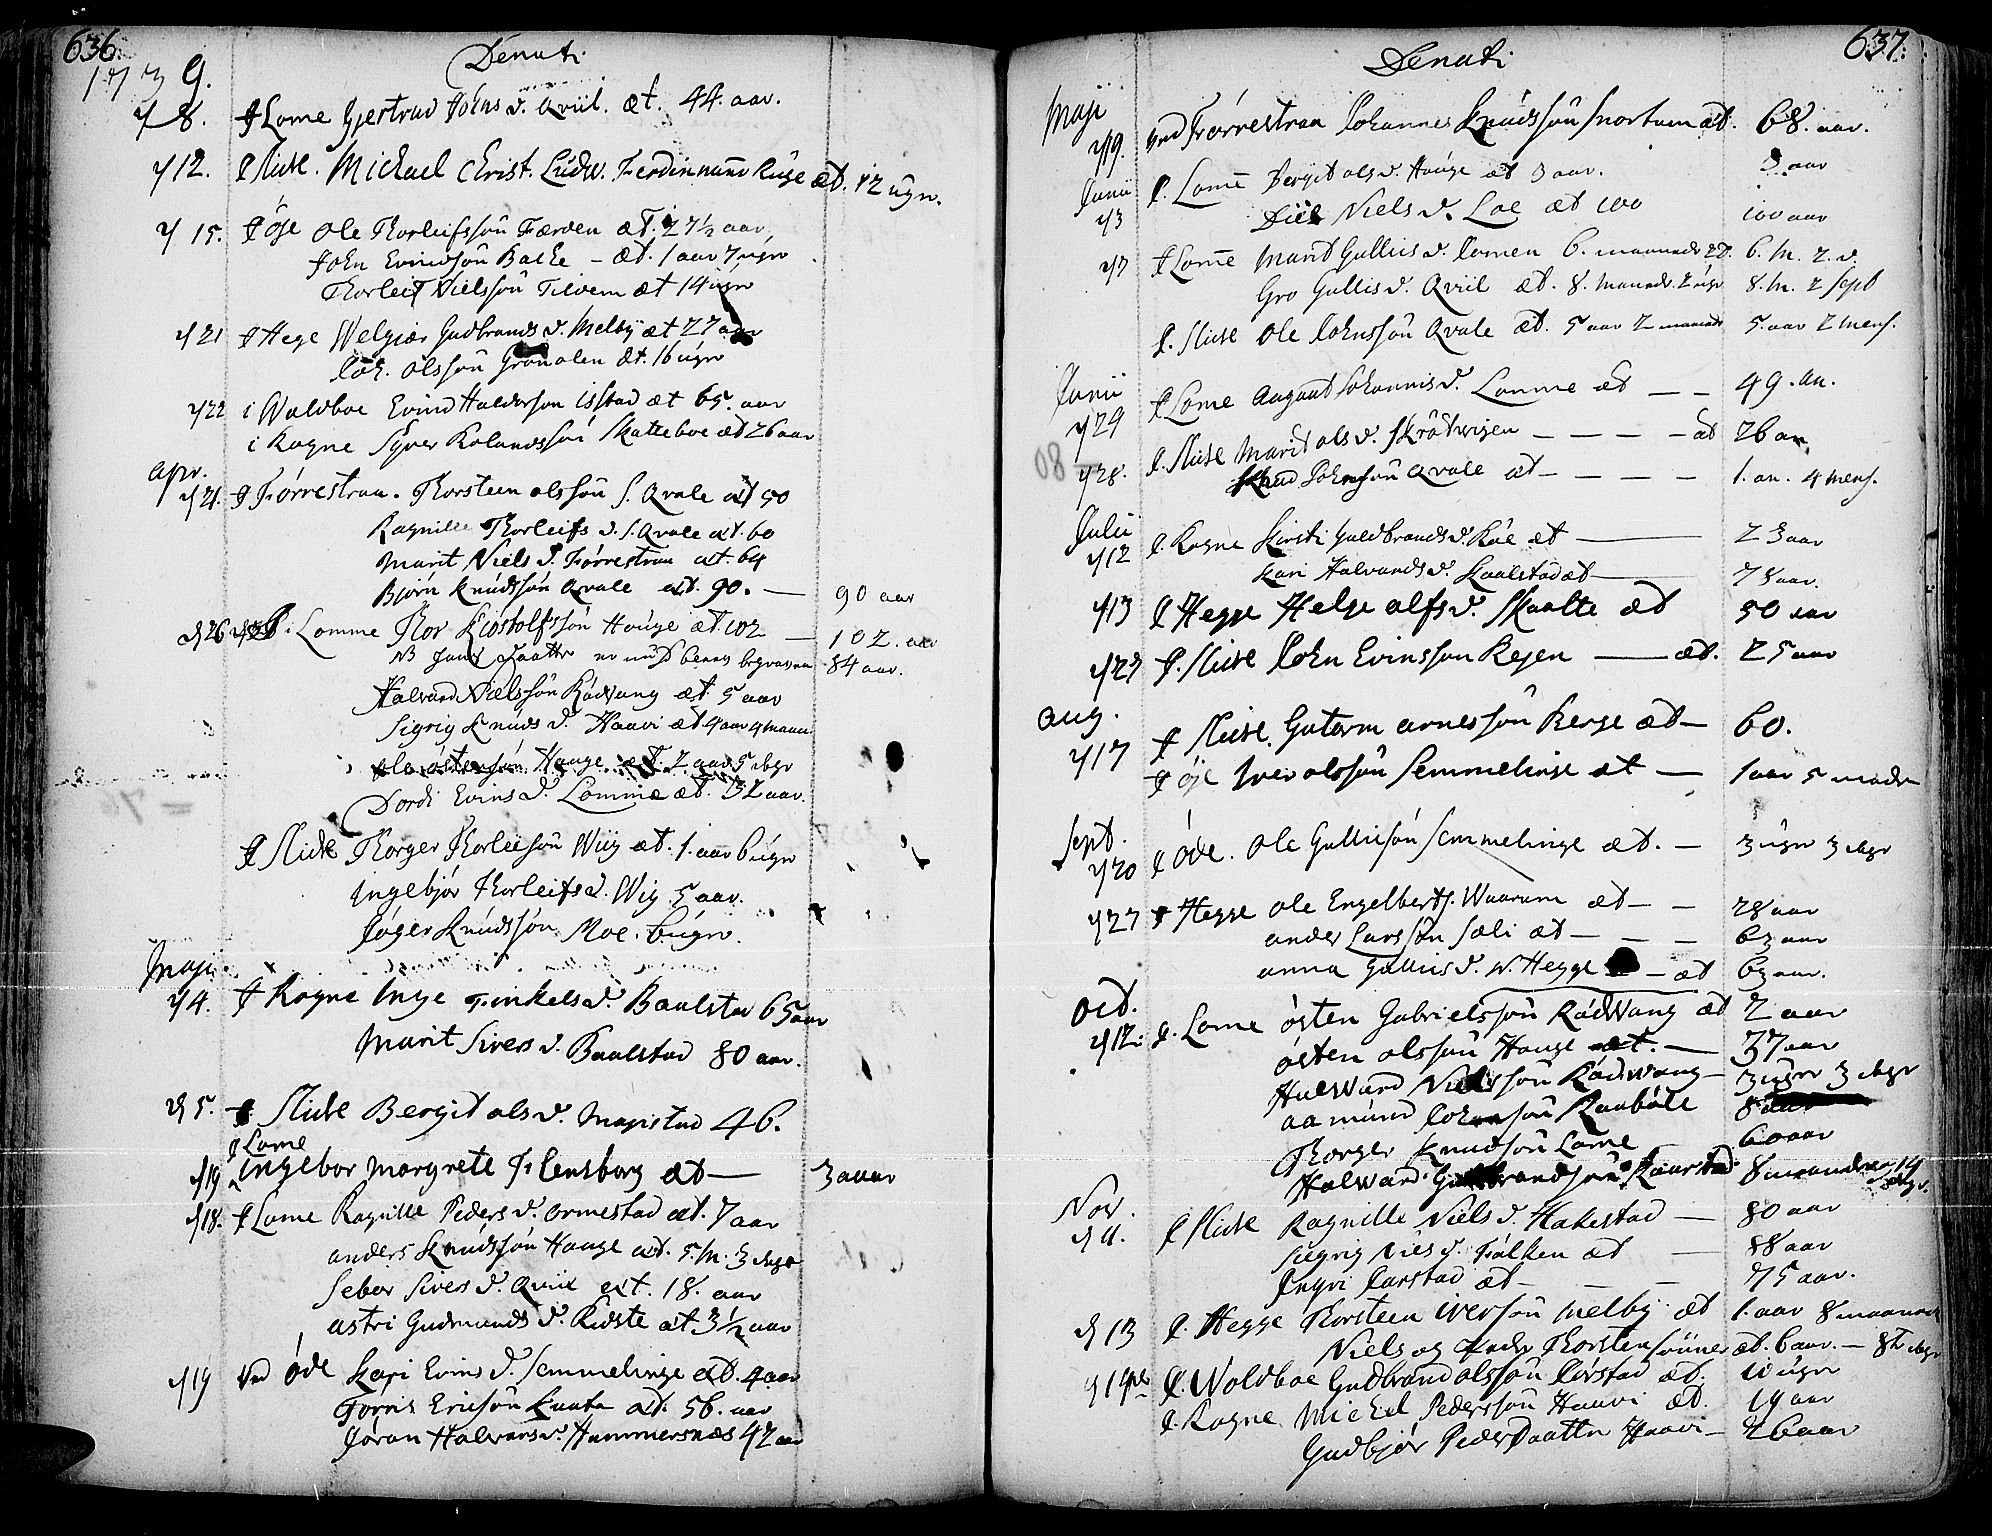 636.
1739.
Denati
8. Lome Gjestrud Johns d. Qviil. æt. 44. aar.
12. Slidre. Michael Christ. Ludw. Ferdinand Ruge æt. 12 ugr.
15. Øje Ole Thorleifssøn Færden æt. 2 7½ aar
John Evindsøn Bakke - æt. 1 aar 7 ugr
Thorleif Nielssøn Tilvem æt 14 ugr
21 Hege Welgiær Gudbrands d. Melby æt 27 aar
Joh. Olssøn Grønolen æt. 16 ugr
22 i Woldboe Evind Haldorson Isstad æt 65. aar
i Rogne Syver Rolandssøn Skatteboe æt 26 aar
Apr.
21. Førrestraa. Thorsteen Olssøn S. Qvale æt 50
Ragnille Thorleifs d. S. Qvale æt. 60
Marit Niels d. Førrestraa æt. 64
Bjørn Knudssøn Qvale æt. 90. — 90 aar
26 Lomme Thor Kiøstolfssøn Houge æt. 102 — 102. aar
84 aar.
Halvard Nielssøn Rødvang æt 5 aar
Sigrig Knuds d. Haavi æt 4 aar 4 maan
Ole Østensøn Houge æt. 2 aar 5 dagr
Dordi Evins d. Lomme æt. 32 aar.
Slidre Thorger Thorleifsøn Wiig æt. 1. aar 6 ugr
Ingebjør Thorleifs d. Wiig 5 aar.
Jøger Knudssøn Moe. 6 ugr.
Maji
4. Rogne Inge Finkels d. Baalstad 65 aar
Marit Sivers d. Baalstad 80 aar.
5. Slidre Bergit Ols d. Magistad 46.
Lome
19 Ingebor Margrete Flensborg æt — 3 aaar
18. Lome Ragnille Peders d. Ormestad æt. 7 aar
Anders Knudssøn Houge æt. 5. M. 3 dagr
Sebor Sivers d. Qviil æt. 18. aar
Astri Gudmunds d. Kidste æt 3½ aar
19 ved Øde Kari Evins d. Semmelinge æt. 4 aar
Torris Ericsøn Kaata æt. 56. aar
Jøran Halvars d. Hammersnæs 42 aar
637.
Denati
Maji
19. ved Førrestraa Johannes Knudssøn Snortum æt. 68. aar.
Junii
3 Lome Bergit Ols d. Houge æt 3 aar. 3 aar
Niels d. Loe æt 100 100 aar
7 Lome Marit Gullics d. Lomen 6. maaneds 2 d. 6. M. 2. d.
Gro Gullics d. Qviil æt. 8. Maneds 2 ugr 8. M. 2 sept
Slidre Ole Johnssøn Qvale æt. 5 aar 2 maneds 5. aar 2 Mens.
Junii
24 Lome Aagaat Johannis d. Lomme æt — — 49. an.
28. Slidre Marit Ols d. Skrødwigen — — — — æt 26 an
Knud Johnsøn Qvale æt — — — — 1. an. 4 mens.
Julii
12 Rogne Kirsti Guldbrands d. Røe æt — 23 aar
Kari Halvards d. Kaalstad æt — 78 aar.
13 Hegge Helge Olfs d. Skaatte æt 50 aar
23 Slidre John Evinsson Rejen — æt. 25 aar
Aug.
17 Slidre. Gutorm Arnessøn Berge æt — 60.
Øje Iver Olssøn Semmelinge æt — 1 aar 5 madr
Sept.
20 Øde. Ole Gulliksøn Semmelinge æt. — 3 ugr 3 dagr
27 Hegge Ole Engelberts. Waarum æt — — 28 aar
Ander Larssøn Sæli æt — — — 63 aar
Anna Gullics d. N. Hegge — æt 63 aar.
Oct.
12. Lome Østen Gabrielssøn Rødvang æt 2 aar
Østen Olssøn Houge æt. — 37 aar
Halward Nielssøn Rødwang — 3 ugr 3 dagr
Aamund Johansøn Raabøle 8 aar
Thorger Knudssøn Lome 60 aar
Halward Gulbrandsøn Kaarstad 8 maander 14 dagr.
Nov.
11. Slidre Ragnille Niels d. Hakestad — 80 aar
Siegrig Niels d. Følken æt — 88 aar
Ingri Jarstad æt — — — 75 aar.
13 Hegge Thorsteen Iversøn Melby æt 1. aar 8 maaneder
Niels og Peder Thorstensønner æt. 6 aar. — 8t dagr
Woldboe Gudbrand Olssøn Jørstad æt. 10 ugr
Rogne Michel Pederssøn Haavi æt. 19 aar
Gudbjør Peder Daatter Haavi — 26 aar